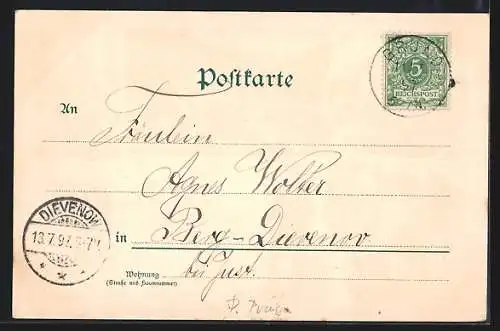 BRÜSO
5
REICHSPOST
Postkarte
An
Fräulein
Agnes Wolter
DIEVENOW
13.7.97. 6-7N.
in Berg-Dievenow
bei Just.
Wohnung
(Straße und Hausnummer)